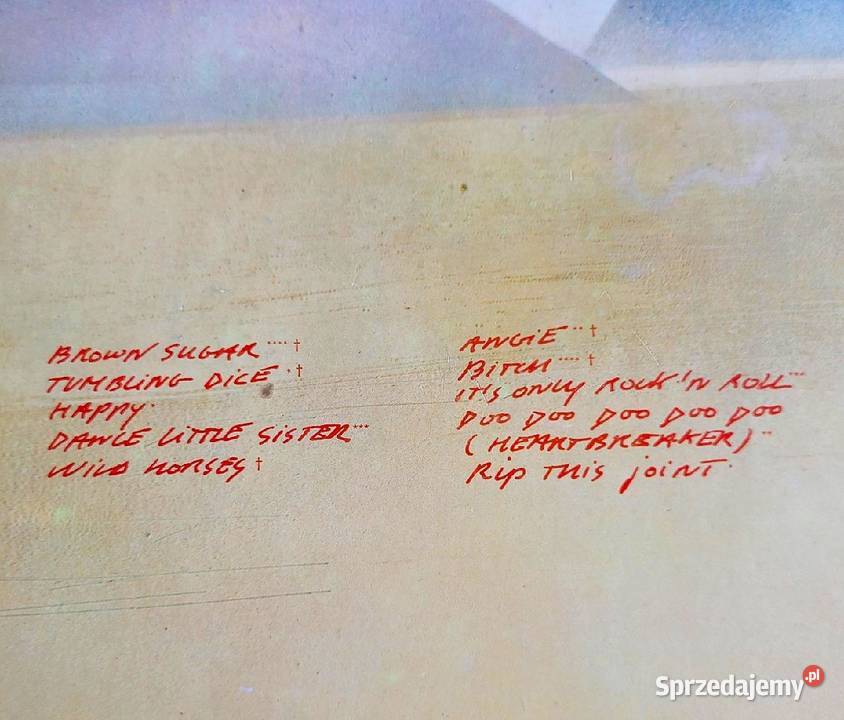 BROWN SUGAR ····†
TUMBLING DICE ·†
HAPPY·
DANCE LITTLE SISTER···
WILD HORSES†
ANGIE ··†
BITCH ····†
IT'S ONLY ROCK 'N ROLL···
DOO DOO DOO DOO DOO
(HEARTBREAKER)··
RIP THIS JOINT·
Sprzedajemy.pl